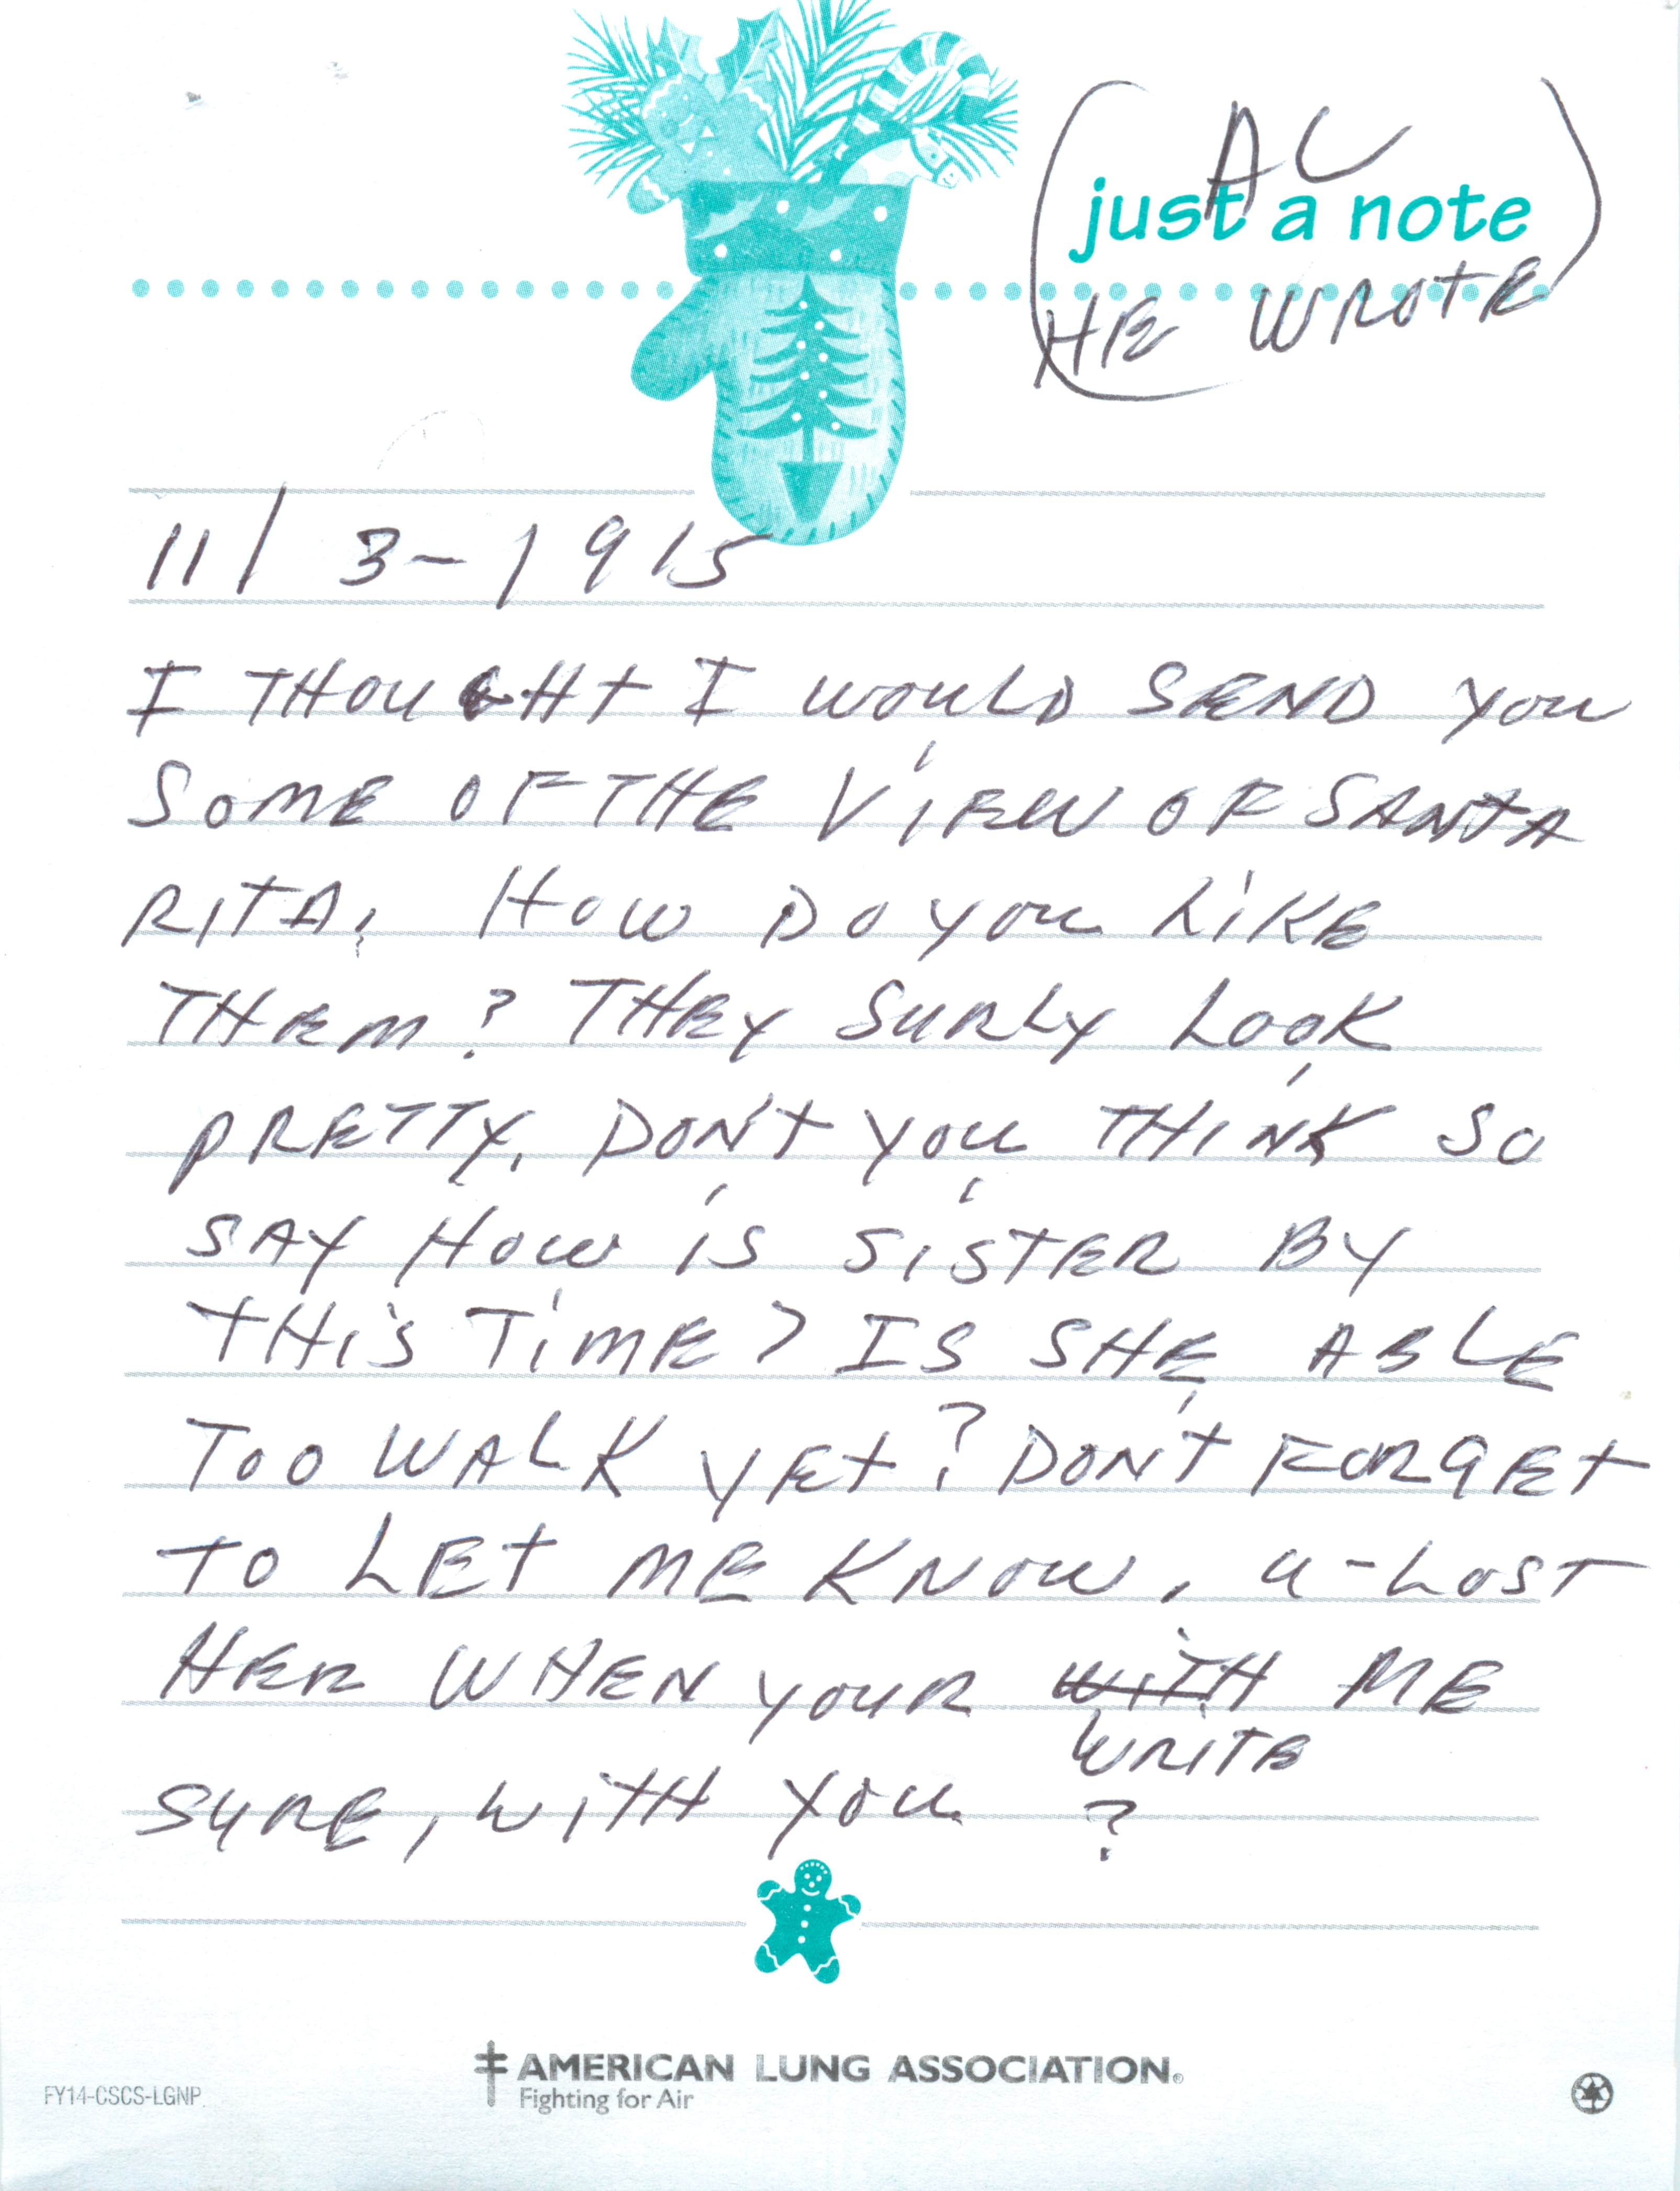 AC
just a note
HE WROTE
11/ 3-1915
I THOUGHT I WOULD SEND YOU
SOME OF THE VIEW OF SANTA
RITA, HOW DO YOU LIKE
THEM? THEY SURLY LOOK
PRETTY, DON'T YOU THINK SO
SAY HOW IS SISTER BY
THIS TIME? IS SHE ABLE
TOO WALK YET? DON'T FORGET
TO LET ME KNOW, U-LOST
HER WHEN YOUR WITH ME
WRITE
SURE, WITH YOU ?
AMERICAN LUNG ASSOCIATION®
Fighting for Air
FY14-CSCS-LGNP